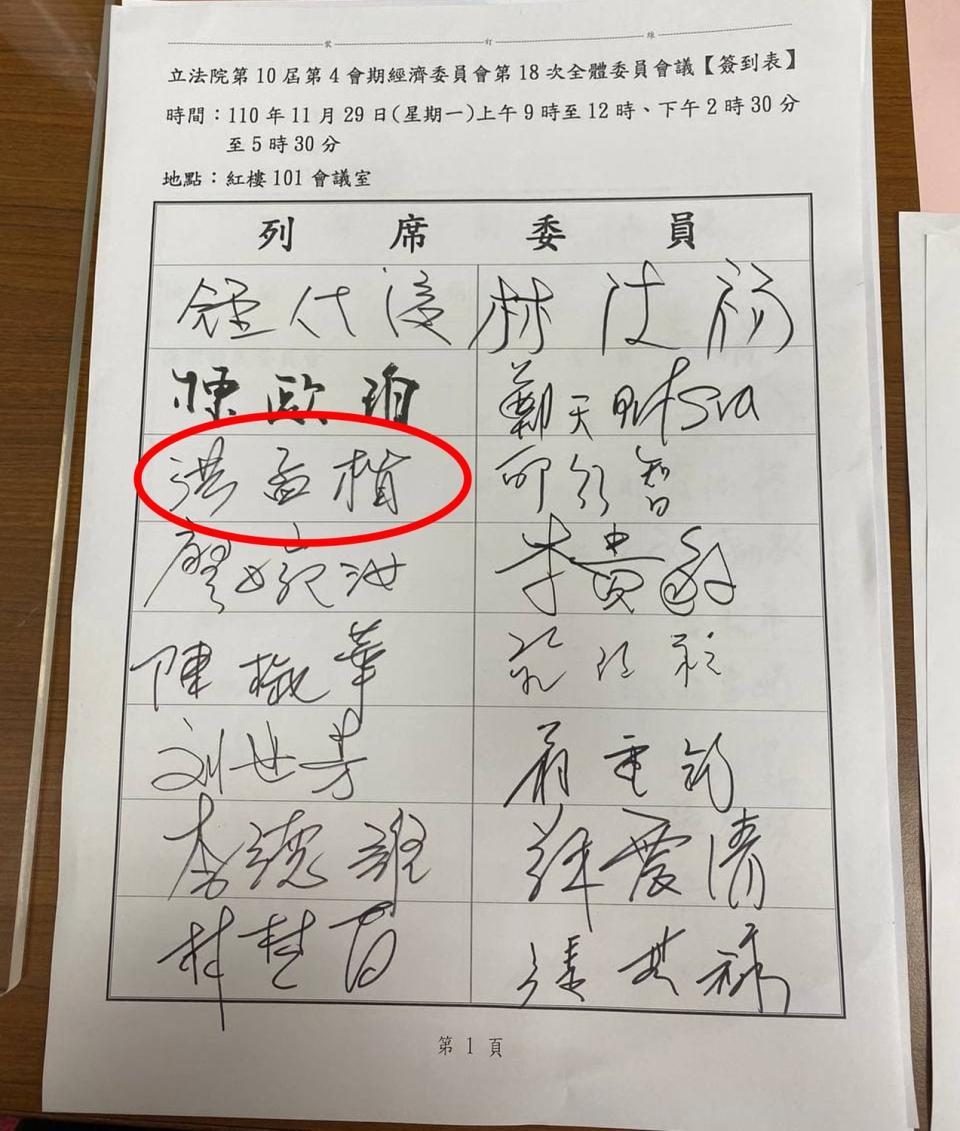 裝 訂 線
立法院第10屆第4會期經濟委員會第18次全體委員會議【簽到表】
時間：110年11月29日(星期一)上午9時至12時、下午2時30分
至5時30分
地點：紅樓101會議室
列 席 委 員
鍾佳濱 林德福
陳歐珀 鄭天財Sra
洪孟楷 邱顯智
廖婉汝 李貴敏
陳椒華
刘世芳 翁重鈞
李德維 蘇震清
林楚茵 張其祿
第 1 頁